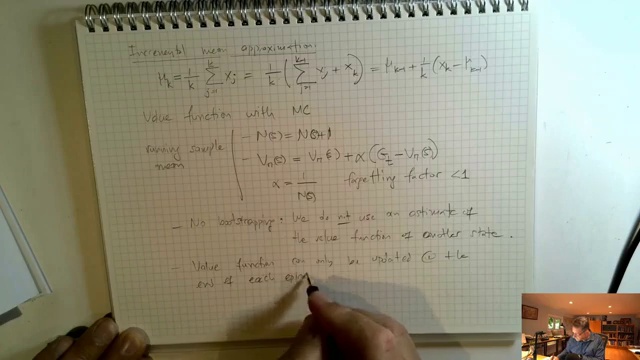 Incremental mean approximation:
μ_k = 1/k Σ_{j=1}^{k} x_j = 1/k ( Σ_{j=1}^{k-1} x_j + x_k ) = μ_{k-1} + 1/k ( x_k − μ_{k-1} )
Value function with MC
running sample mean
– N(s) = N(s)+1
– V_π(s) = V_π(s) + α ( G_t − V_π(s) )
α = 1/N(s) forgetting factor < 1
– No bootstrapping: We do not use an estimate of
the value function of another state.
– Value function can only be updated @ the
end of each